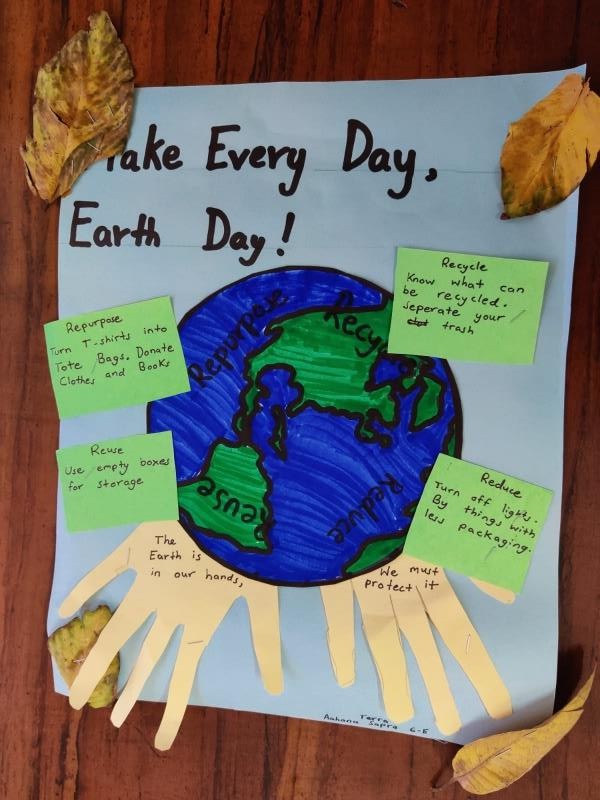 Make Every Day,
Earth Day!
Recycle
Know what can
be recycled.
seperate your
trash
Repurpose
Turn T-shirts into
Tote Bags. Donate
Clothes and Books
Reuse
Use empty boxes
for storage
Reduce
Turn off lights.
By things with
less packaging.
Repurpose
Recycle
Reuse
Reduce
The
Earth is
in our hands,
We must
protect it
Terra
Aahana Sapra 6-E